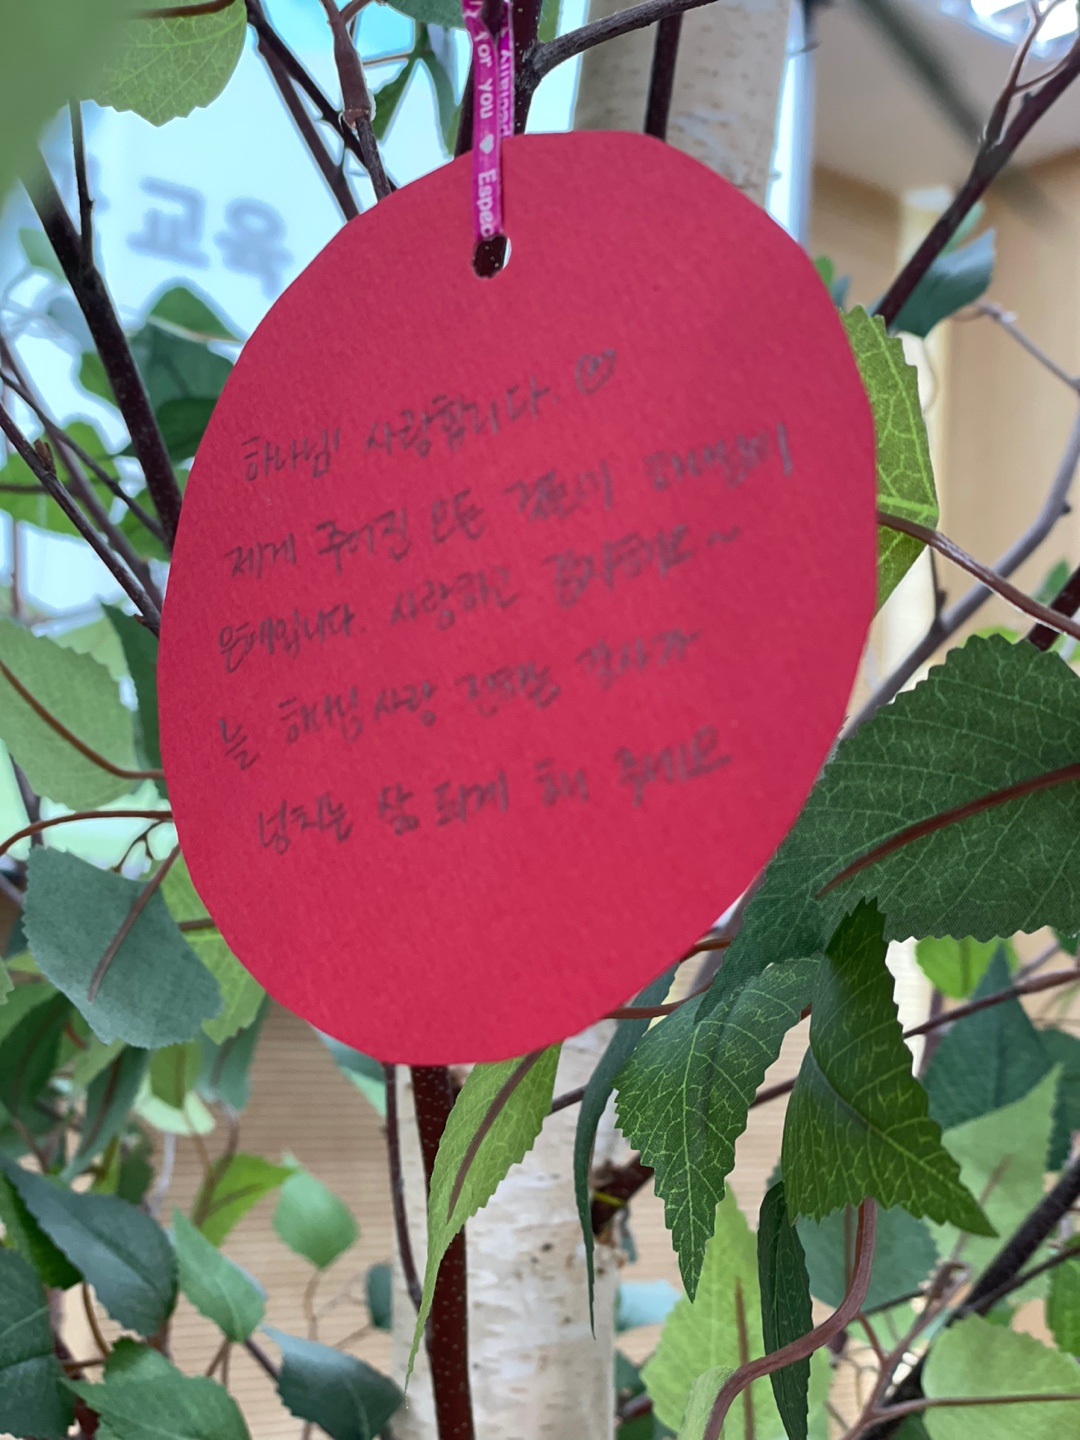 for you ♥ Espec
유교
하나님! 사랑합니다. ♡
제게 주어진 모든 것들이 하나님의
은혜입니다. 사랑하고 감사해요~
늘 하나님 사랑 감사가
넘치는 삶 되게 해 주세요